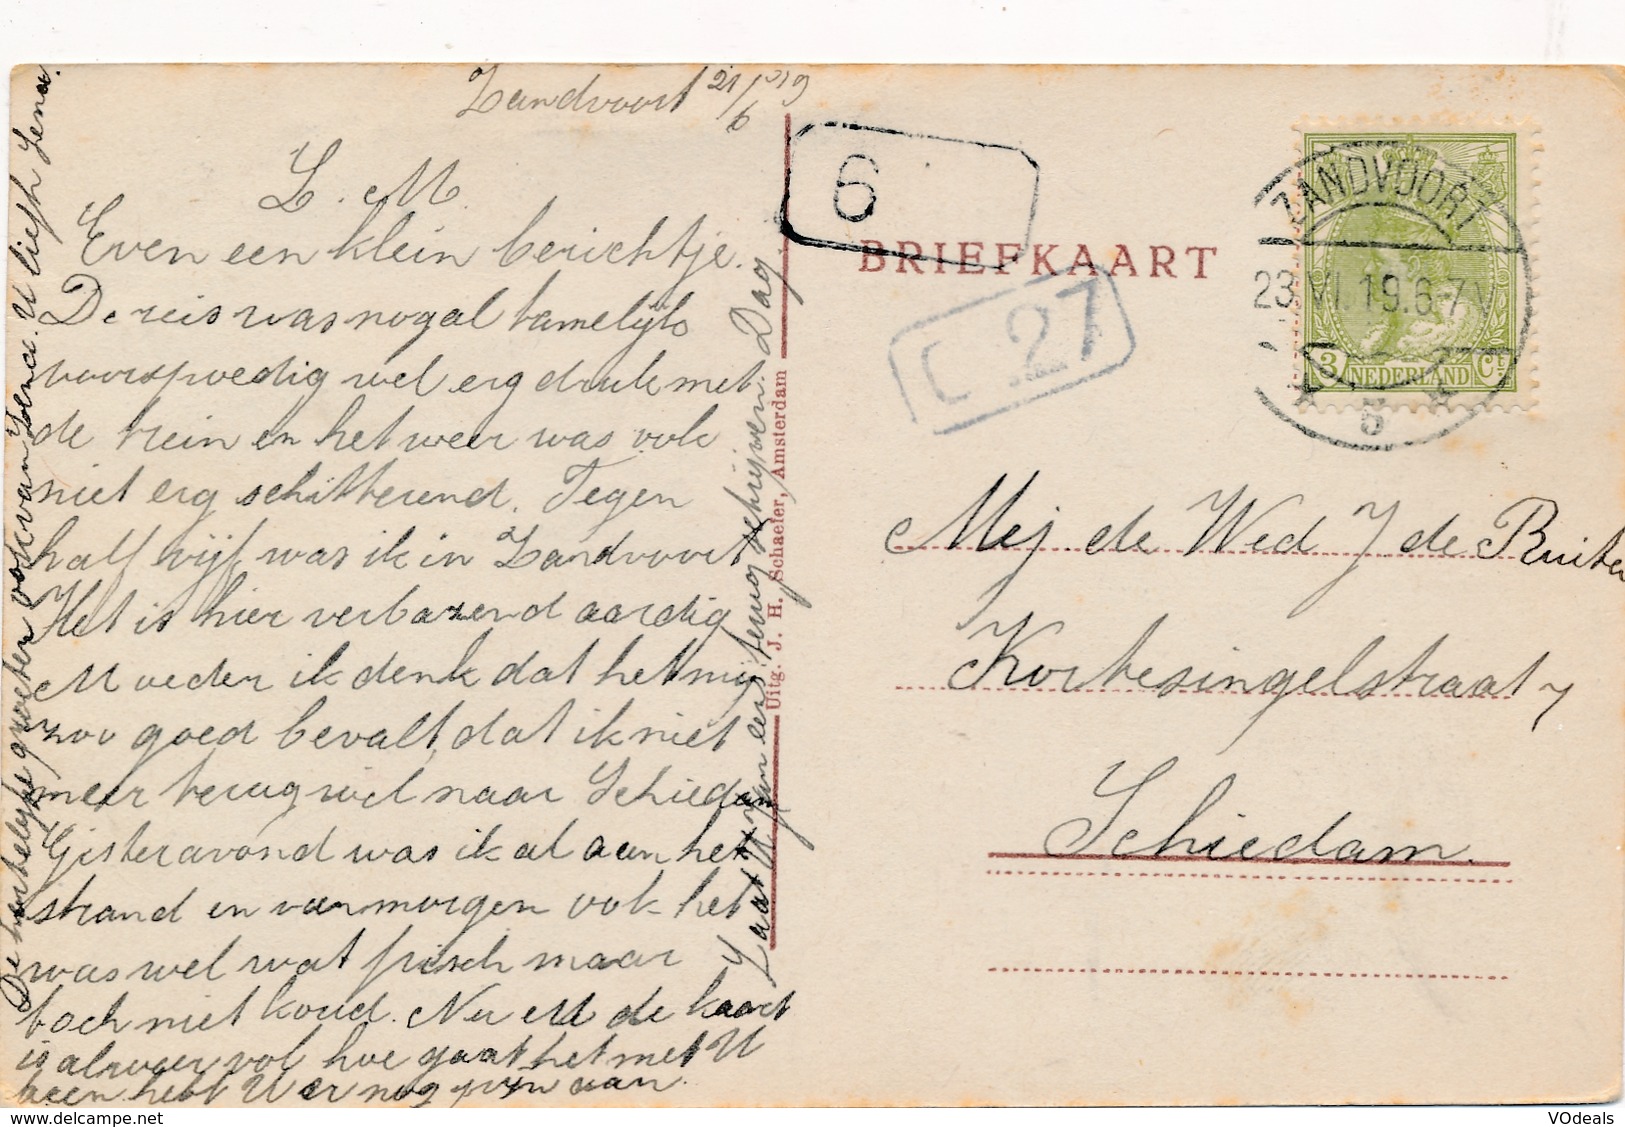 Zandvoort 21/6 '19
L. M.
Even een klein berichtje.
De reis was nogal tamelijk
voorspoedig wel erg druk met
de trein en het weer was ook
niet erg schitterend. Tegen
half vijf was ik in Zandvoort
Het is hier verbazend aardig
Moeder ik denk dat het mij
zoo goed bevalt, dat ik niet
meer terug wil naar Schiedam
Gisteravond was ik al aan het
strand en vanmorgen ook het
was wel wat frisch maar
toch niet koud. Nu M de kaart
is alweer vol hoe gaat het met U
been hebt U er nog pijn van.
Laat eens terug schrijven. Dag
De hartelijke groeten ook van Lena. U liefh Lena.
Uitg. J. H. Schaefer, Amsterdam
6
BRIEFKAART
C 27
ZANDVOORT
23.VI.19.6-7
5
3 NEDERLAND Ct
Mej. de Wed J de Ruiter
Kortesingelstraat 7
Schiedam.
VOdeals